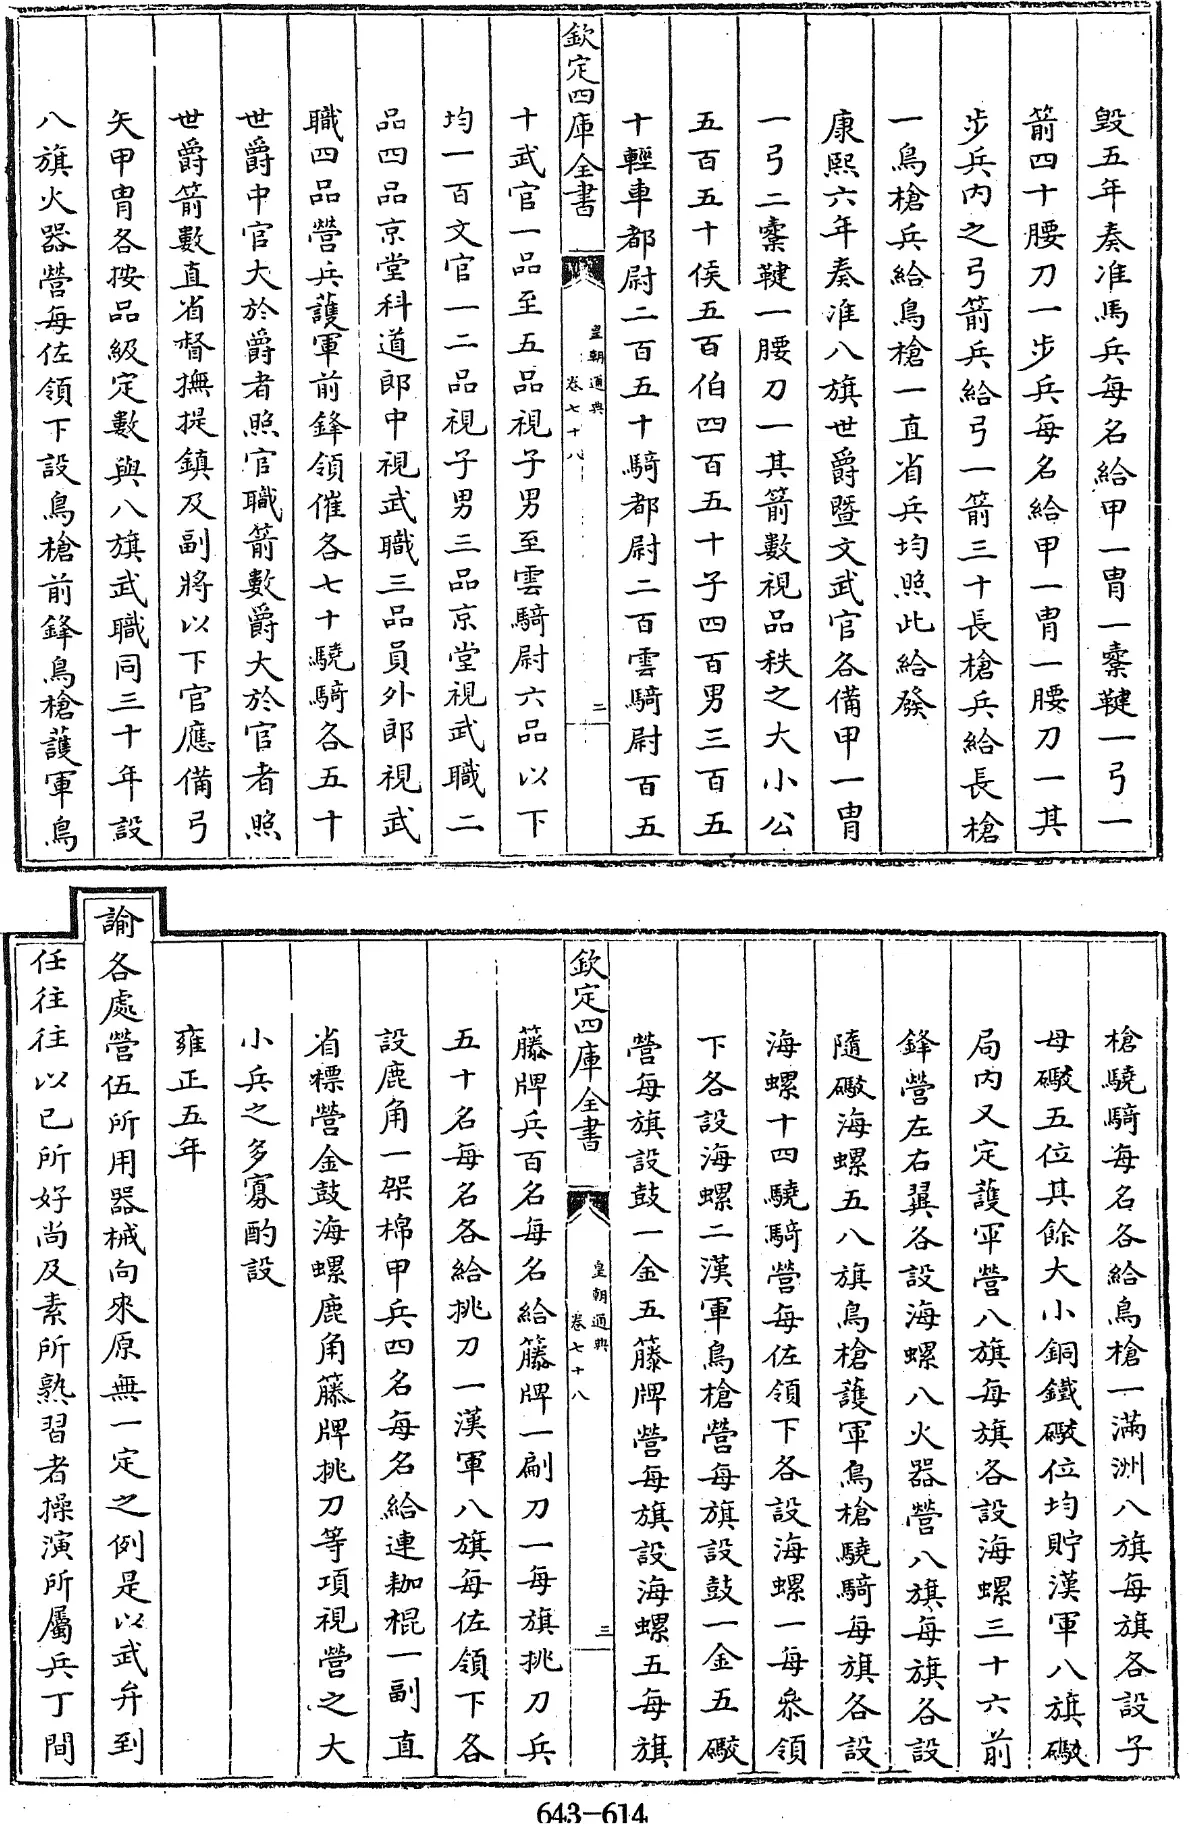 毀五年奏准馬兵每名給甲一胄一櫜鞬一弓一
箭四十腰刀一步兵每名給甲一胄一腰刀一其
步兵内之弓箭兵給弓一箭三十長槍兵給長槍
一鳥槍兵給鳥槍一直省兵均照此給發
康熙六年奏准八旗世爵暨文武官各備甲一胄
一弓二櫜鞬一腰刀一其箭數視品秩之大小公
五百五十侯五百伯四百五十子四百男三百五
十輕車都尉二百五十騎都尉二百雲騎尉百五
欽定四庫全書
皇朝通典
卷七十八
二
十武官一品至五品視子男至雲騎尉六品以下
均一百文官一二品視子男三品京堂視武職二
品四品京堂科道郎中視武職三品員外郎視武
職四品營兵護軍前鋒領催各七十驍騎各五十
世爵中官大於爵者照官職箭數爵大於官者照
世爵箭數直省督撫提鎮及副將以下官應備弓
矢甲胄各按品級定數與八旗武職同三十年設
八旗火器營每佐領下設鳥槍前鋒鳥槍護軍鳥
槍驍騎每名各給鳥槍一滿洲八旗每旗各設子
母礮五位其餘大小銅鐵礮位均貯漢軍八旗礮
局内又定護軍營八旗每旗各設海螺三十六前
鋒營左右翼各設海螺八火器營八旗每旗各設
隨礮海螺五八旗鳥槍護軍鳥槍驍騎每旗各設
海螺十四驍騎營每佐領下各設海螺一每叅領
下各設海螺二漢軍鳥槍營每旗設鼓一金五礮
營每旗設鼓一金五藤牌營每旗設海螺五每旗
欽定四庫全書
皇朝通典
卷七十八
三
藤牌兵百名每名給藤牌一副刀一每旗挑刀兵
五十名每名各給挑刀一漢軍八旗每佐領下各
設鹿角一架棉甲兵四名每名給連耞棍一副直
省標營金鼓海螺鹿角藤牌挑刀等項視營之大
小兵之多寡酌設
雍正五年
諭各處營伍所用器械向來原無一定之例是以武弁到
任往往以已所好尚及素所熟習者操演所屬兵丁間
643-614